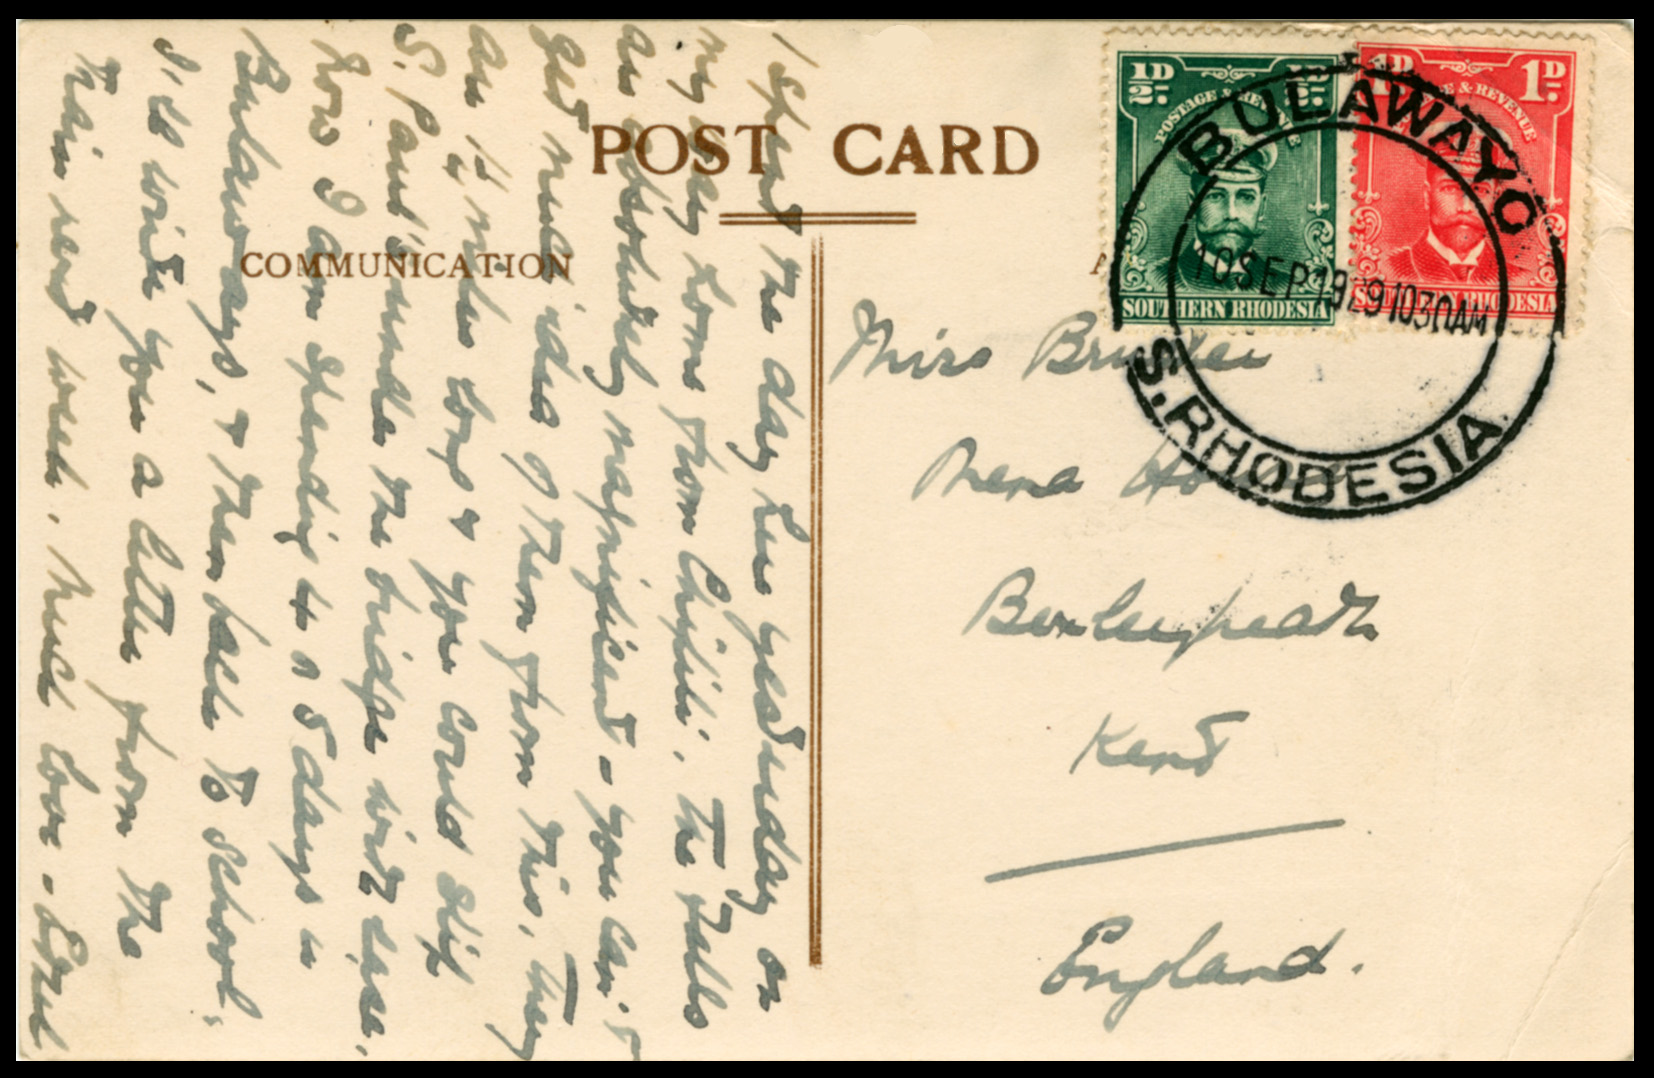 POST CARD
COMMUNICATION
I spent the day here yesterday on
my way home from Chilili. The Falls
are absolutely magnificent - you can't
get much idea of them from this. They
are 1¼ miles long & you could slip
S. Paul's under the bridge with ease.
Now I am spending 4 or 5 days in
Bulawayo, & then back to school.
I'll write you a letter from the
train next week. Much love - Ethel
½D
POSTAGE & REVENUE
SOUTHERN RHODESIA
1D
POSTAGE & REVENUE
SOUTHERN RHODESIA
BULAWAYO
10 SEP 1929 1030AM
S. RHODESIA
Miss
Mena House
Bexleyheath
Kent
England.